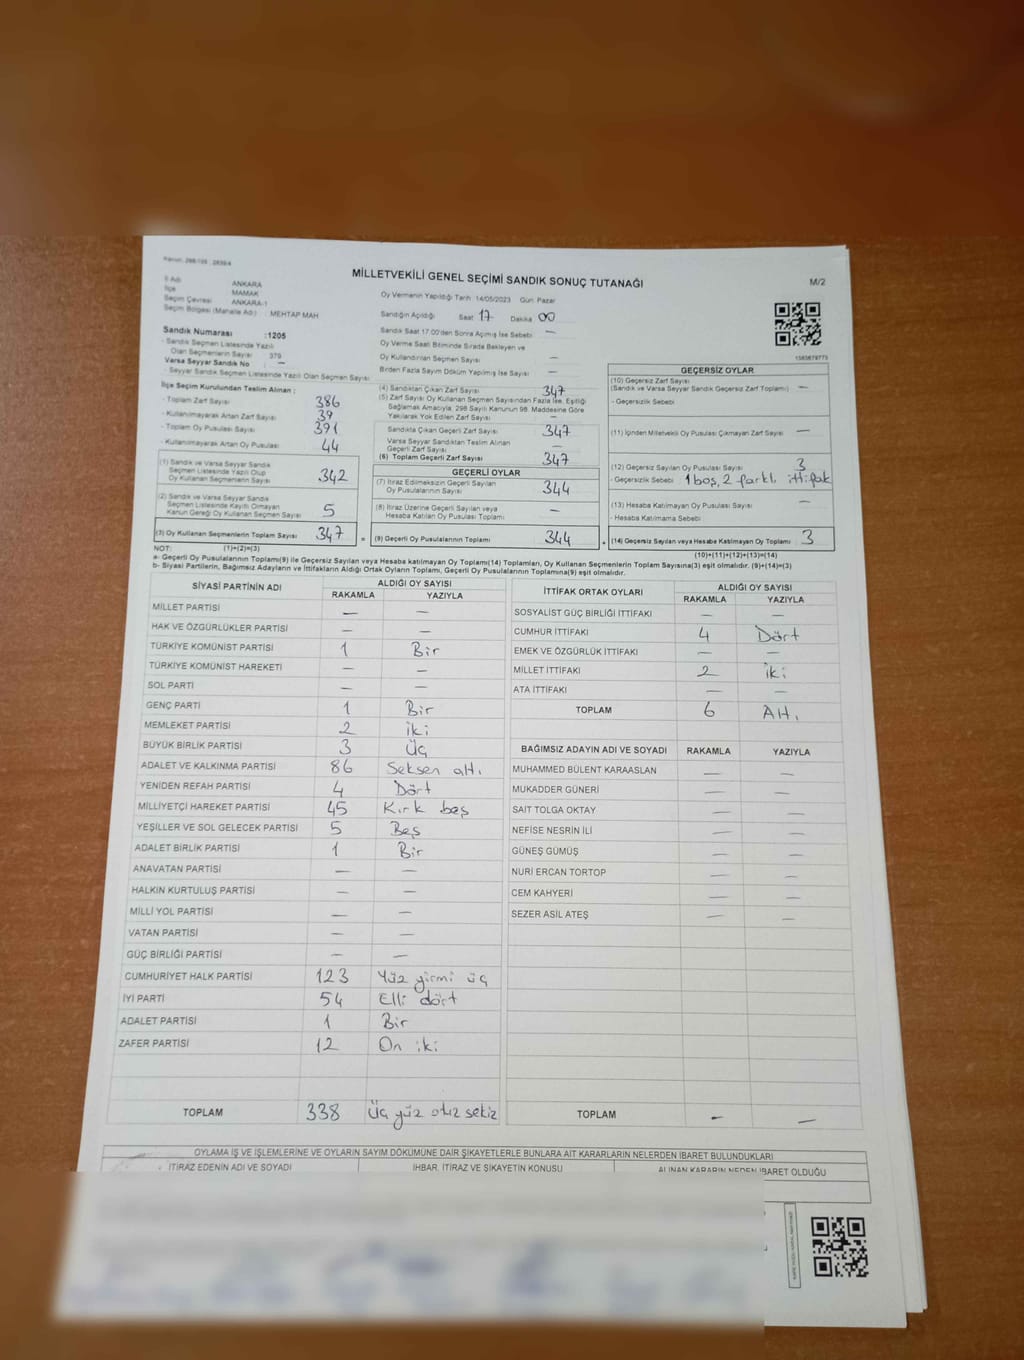 MİLLETVEKİLİ GENEL SEÇİMİ SANDIK SONUÇ TUTANAĞI
M/2
İl Adı ANKARA
İlçe MAMAK
Seçim Çevresi ANKARA-1
Seçim Bölgesi (Mahalle Adı) : MEHTAP MAH
Sandık Numarası :1205
- Sandık Seçmen Listesinde Yazılı Olan Seçmenlerin Sayısı 379
Varsa Seyyar Sandık No : —
- Seyyar Sandık Seçmen Listesinde Yazılı Olan Seçmen Sayısı
Oy Vermenin Yapıldığı Tarih :14/05/2023 Gün: Pazar
Sandığın Açıldığı Saat 17 Dakika 00
Sandık Saat 17.00'den Sonra Açılmış İse Sebebi —
Oy Verme Saati Bitiminde Sırada Bekleyen ve
Oy Kullandırılan Seçmen Sayısı —
Birden Fazla Sayım Döküm Yapılmış İse Sayısı —
1583679773
İlçe Seçim Kurulundan Teslim Alınan ;
- Toplam Zarf Sayısı 386
- Kullanılmayarak Artan Zarf Sayısı 39
- Toplam Oy Pusulası Sayısı 391
- Kullanılmayarak Artan Oy Pusulası 44
(1) Sandık ve Varsa Seyyar Sandık
Seçmen Listesinde Yazılı Olup
Oy Kullanan Seçmenlerin Sayısı 342
(2) Sandık ve Varsa Seyyar Sandık
Seçmen Listesinde Kayıtlı Olmayan
Kanun Gereği Oy Kullanan Seçmen Sayısı 5
(3) Oy Kullanan Seçmenlerin Toplam Sayısı 347 =
(4) Sandıktan Çıkan Zarf Sayısı 347
(5) Zarf Sayısı Oy Kullanan Seçmen Sayısından Fazla İse, Eşitliği
Sağlamak Amacıyla, 298 Sayılı Kanunun 98. Maddesine Göre
Yakılarak Yok Edilen Zarf Sayısı —
Sandıkta Çıkan Geçerli Zarf Sayısı 347
Varsa Seyyar Sandıktan Teslim Alınan
Geçerli Zarf Sayısı —
(6) Toplam Geçerli Zarf Sayısı 347
GEÇERLİ OYLAR
(7) İtiraz Edilmeksizin Geçerli Sayılan
Oy Pusulalarının Sayısı 344
(8) İtiraz Üzerine Geçerli Sayılan veya
Hesaba Katılan Oy Pusulası Toplamı —
(9) Geçerli Oy Pusulalarının Toplamı 344 +
GEÇERSİZ OYLAR
(10) Geçersiz Zarf Sayısı
(Sandık ve Varsa Seyyar Sandık Geçersiz Zarf Toplamı) —
- Geçersizlik Sebebi
(11) İçinden Milletvekili Oy Pusulası Çıkmayan Zarf Sayısı —
(12) Geçersiz Sayılan Oy Pusulası Sayısı 3
- Geçersizlik Sebebi 1 boş, 2 farklı ittifak
(13) Hesaba Katılmayan Oy Pusulası Sayısı —
- Hesaba Katılmama Sebebi
(14) Geçersiz Sayılan veya Hesaba Katılmayan Oy Toplamı 3
NOT: (1)+(2)=(3) (10)+(11)+(12)+(13)=(14)
a- Geçerli Oy Pusulalarının Toplamı(9) ile Geçersiz Sayılan veya Hesaba katılmayan Oy Toplamı(14) Toplamları, Oy Kullanan Seçmenlerin Toplam Sayısına(3) eşit olmalıdır. (9)+(14)=(3)
b- Siyasi Partilerin, Bağımsız Adayların ve İttifakların Aldığı Ortak Oyların Toplamı, Geçerli Oy Pusulalarının Toplamına(9) eşit olmalıdır.
SİYASİ PARTİNİN ADI ALDIĞI OY SAYISI
RAKAMLA YAZIYLA
MİLLET PARTİSİ — —
HAK VE ÖZGÜRLÜKLER PARTİSİ — —
TÜRKİYE KOMÜNİST PARTİSİ 1 Bir
TÜRKİYE KOMÜNİST HAREKETİ — —
SOL PARTİ — —
GENÇ PARTİ 1 Bir
MEMLEKET PARTİSİ 2 iki
BÜYÜK BİRLİK PARTİSİ 3 Üç
ADALET VE KALKINMA PARTİSİ 86 Seksen altı
YENİDEN REFAH PARTİSİ 4 Dört
MİLLİYETÇİ HAREKET PARTİSİ 45 Kırk beş
YEŞİLLER VE SOL GELECEK PARTİSİ 5 Beş
ADALET BİRLİK PARTİSİ 1 Bir
ANAVATAN PARTİSİ — —
HALKIN KURTULUŞ PARTİSİ — —
MİLLİ YOL PARTİSİ — —
VATAN PARTİSİ — —
GÜÇ BİRLİĞİ PARTİSİ — —
CUMHURİYET HALK PARTİSİ 123 Yüz yirmi üç
İYİ PARTİ 54 Elli dört
ADALET PARTİSİ 1 Bir
ZAFER PARTİSİ 12 On iki
TOPLAM 338 Üç yüz otuz sekiz
İTTİFAK ORTAK OYLARI ALDIĞI OY SAYISI
RAKAMLA YAZIYLA
SOSYALİST GÜÇ BİRLİĞİ İTTİFAKI — —
CUMHUR İTTİFAKI 4 Dört
EMEK VE ÖZGÜRLÜK İTTİFAKI — —
MİLLET İTTİFAKI 2 iki
ATA İTTİFAKI — —
TOPLAM 6 Altı
BAĞIMSIZ ADAYIN ADI VE SOYADI RAKAMLA YAZIYLA
MUHAMMED BÜLENT KARAASLAN — —
MUKADDER GÜNERİ — —
SAİT TOLGA OKTAY — —
NEFİSE NESRİN İLİ — —
GÜNEŞ GÜMÜŞ — —
NURİ ERCAN TORTOP — —
CEM KAHYERİ — —
SEZER ASİL ATEŞ — —
TOPLAM — —
OYLAMA İŞ VE İŞLEMLERİNE VE OYLARIN SAYIM DÖKÜMÜNE DAİR ŞİKAYETLERLE BUNLARA AİT KARARLARIN NELERDEN İBARET BULUNDUKLARI
İTİRAZ EDENİN ADI VE SOYADI İHBAR, İTİRAZ VE ŞİKAYETİN KONUSU ALINAN KARARIN NEDEN İBARET OLDUĞU